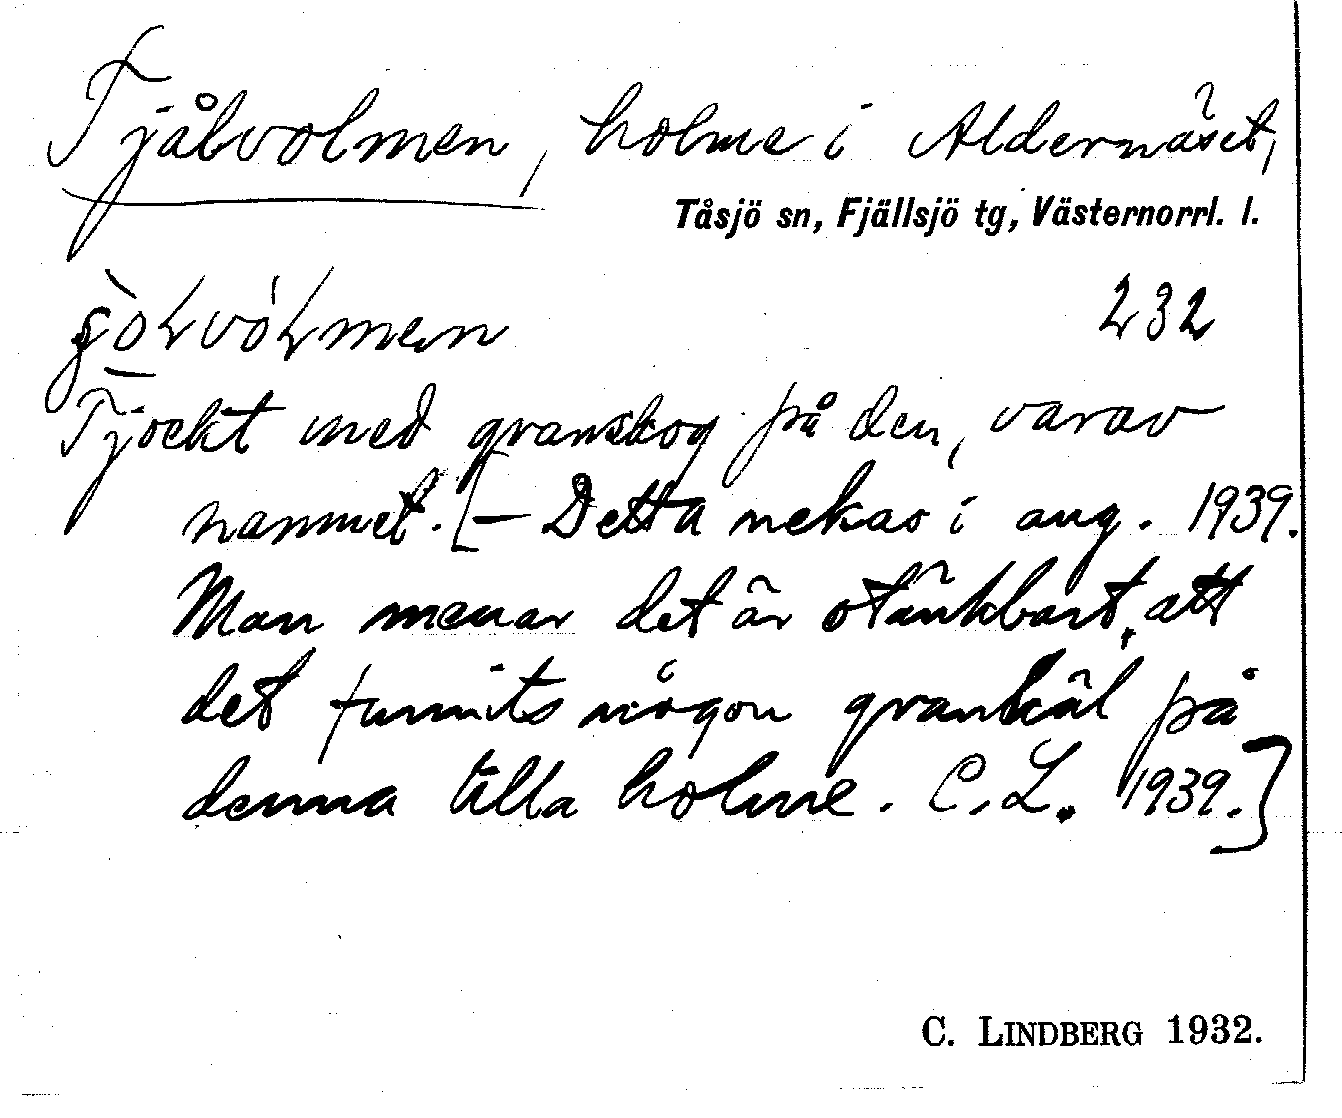 Tjålvolmen, holme i Aldernäset,
Tåsjö sn, Fjällsjö tg, Västernorrl. l.
232
Tjockt med granskog på den, varav
namnet. [– Detta nekas i aug. 1939.
Man menar det är otänkbart, att
det funnits någon grankäl på
denna lilla holme. C. L. 1939.]
C. LINDBERG 1932.